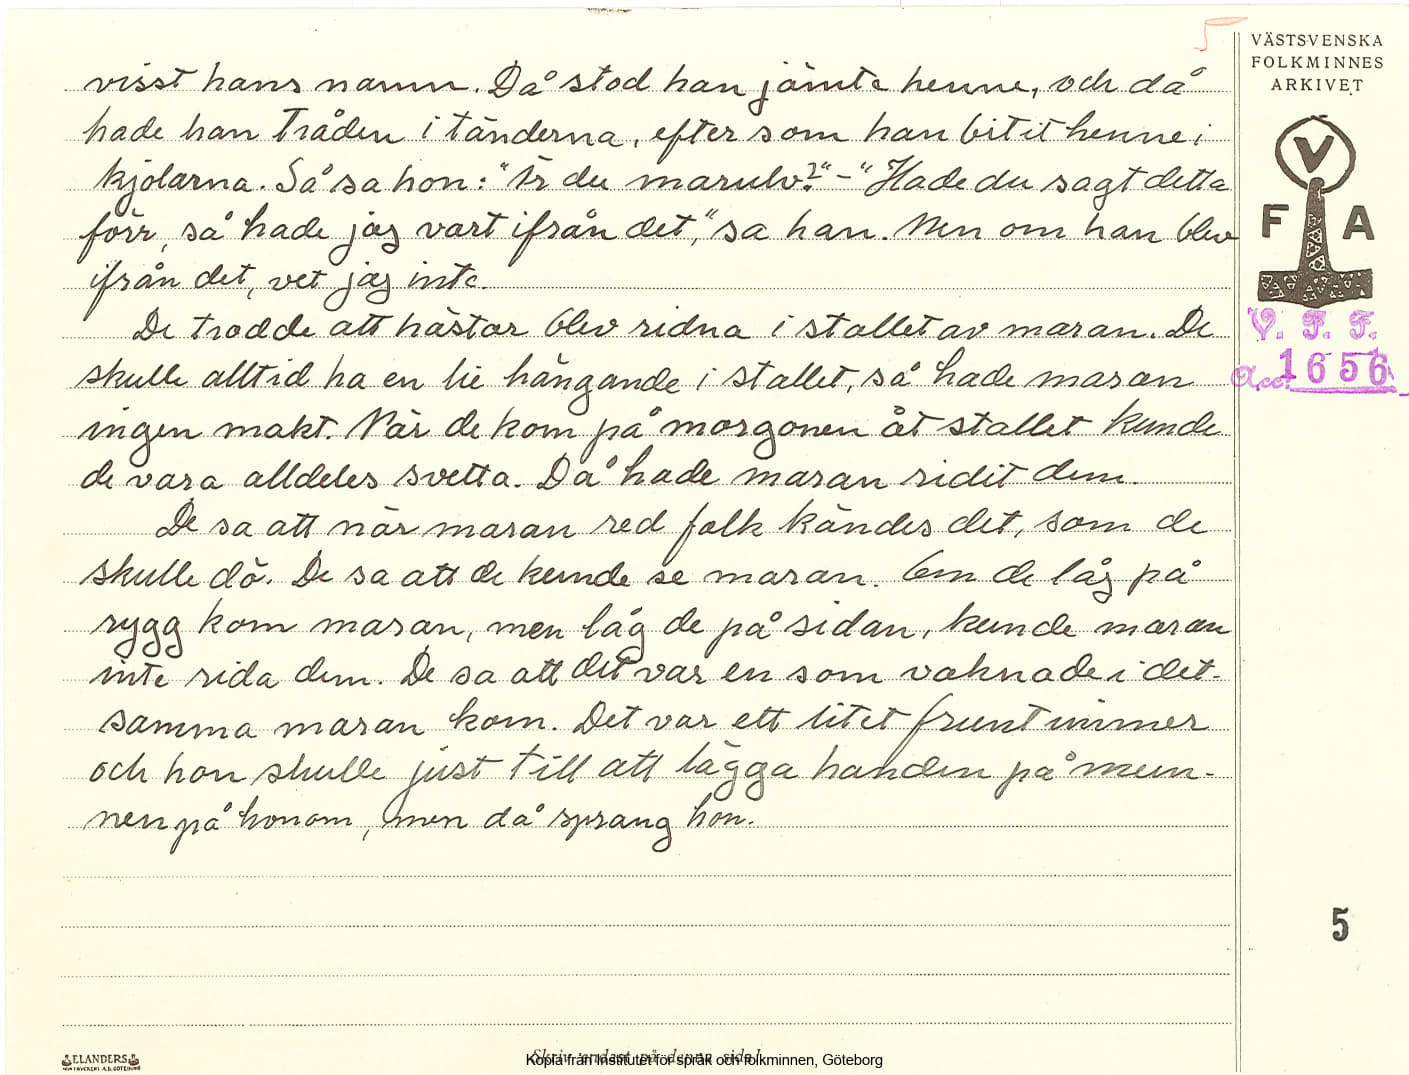 5
VÄSTSVENSKA
FOLKMINNES
ARKIVET
V
F A
V. F. F.
Acc. 1656
visst hans namn. Då stod han jämte henne, och då
hade han tråden i tänderna, efter som han bitit henne i
kjolarna. Så sa hon: "Är du marulv?" – "Hade du sagt detta
förr, så hade jag vart ifrån det," sa han. Men om han blev
ifrån det, vet jag inte.
De trodde att hästar blev ridna i stallet av maran. De
skulle alltid ha en lie hängande i stallet, så hade maran
ingen makt. När de kom på morgonen åt stallet kunde
de vara alldeles svetta. Då hade maran ridit dem.
De sa att när maran red folk kändes det, som de
skulle dö. De sa att de kunde se maran. Om de låg på
rygg kom maran, men låg de på sidan, kunde maran
inte rida dem. De sa att det var en som vaknade i det-
samma maran kom. Det var ett litet fruntimmer
och hon skulle just till att lägga handen på mun-
nen på honom, men då sprang hon.
5
ELANDERS
Skriv endast på denna sida!
Kopia från Institutet för språk och folkminnen, Göteborg